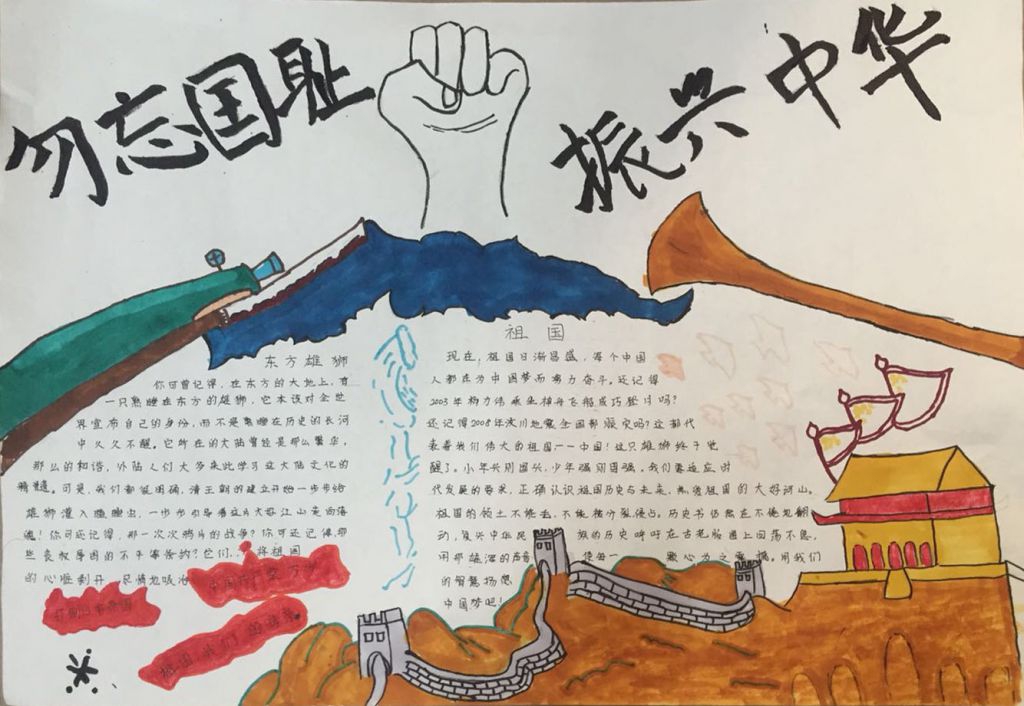 勿忘国耻
振兴中华
东方雄狮
你可曾记得,在东方的大地上,有
一只熟睡在东方的雄狮,它本该对全世
界宣布自己的身份,而不是熟睡在历史的长河
中久久不醒。它所在的大陆曾经是那么繁华,
那么的和谐,外陆人们大多来此学习这大陆文化的
精髓。可是,我们都很困惑,清王朝的建立开始一步步给
雄狮灌入瞌睡虫,一步步引导着这片大好江山走向落
魄!你可还记得,那一次次鸦片的战争?你可还记得那
些丧权辱国的不平等条约?它们,将祖国
的心脏剥开,尽情地吸
打倒日本帝国
祖国
现在,祖国日渐昌盛,每个中国
人都在为中国梦而努力奋斗。还记得
2003年杨利伟乘坐神舟飞船成功登月吗?
还记得2008年汶川地震全国都赈灾吗?这都代
表着我们伟大的祖国——中国!这只雄狮终于觉
醒了。少年兴则国兴,少年强则国强。我们要适应时
代发展的要求,正确认识祖国历史与未来,热爱祖国的大好河山。
祖国的领土不能丢,不能被分裂侵占。历史书仍然在不倦地翻
动,复兴中华民族的历史呼吁在古老版图上回荡不息,
用那雄浑的声音 使每一 颗心为之震撼。用我们
的智慧扬起
中国梦吧!